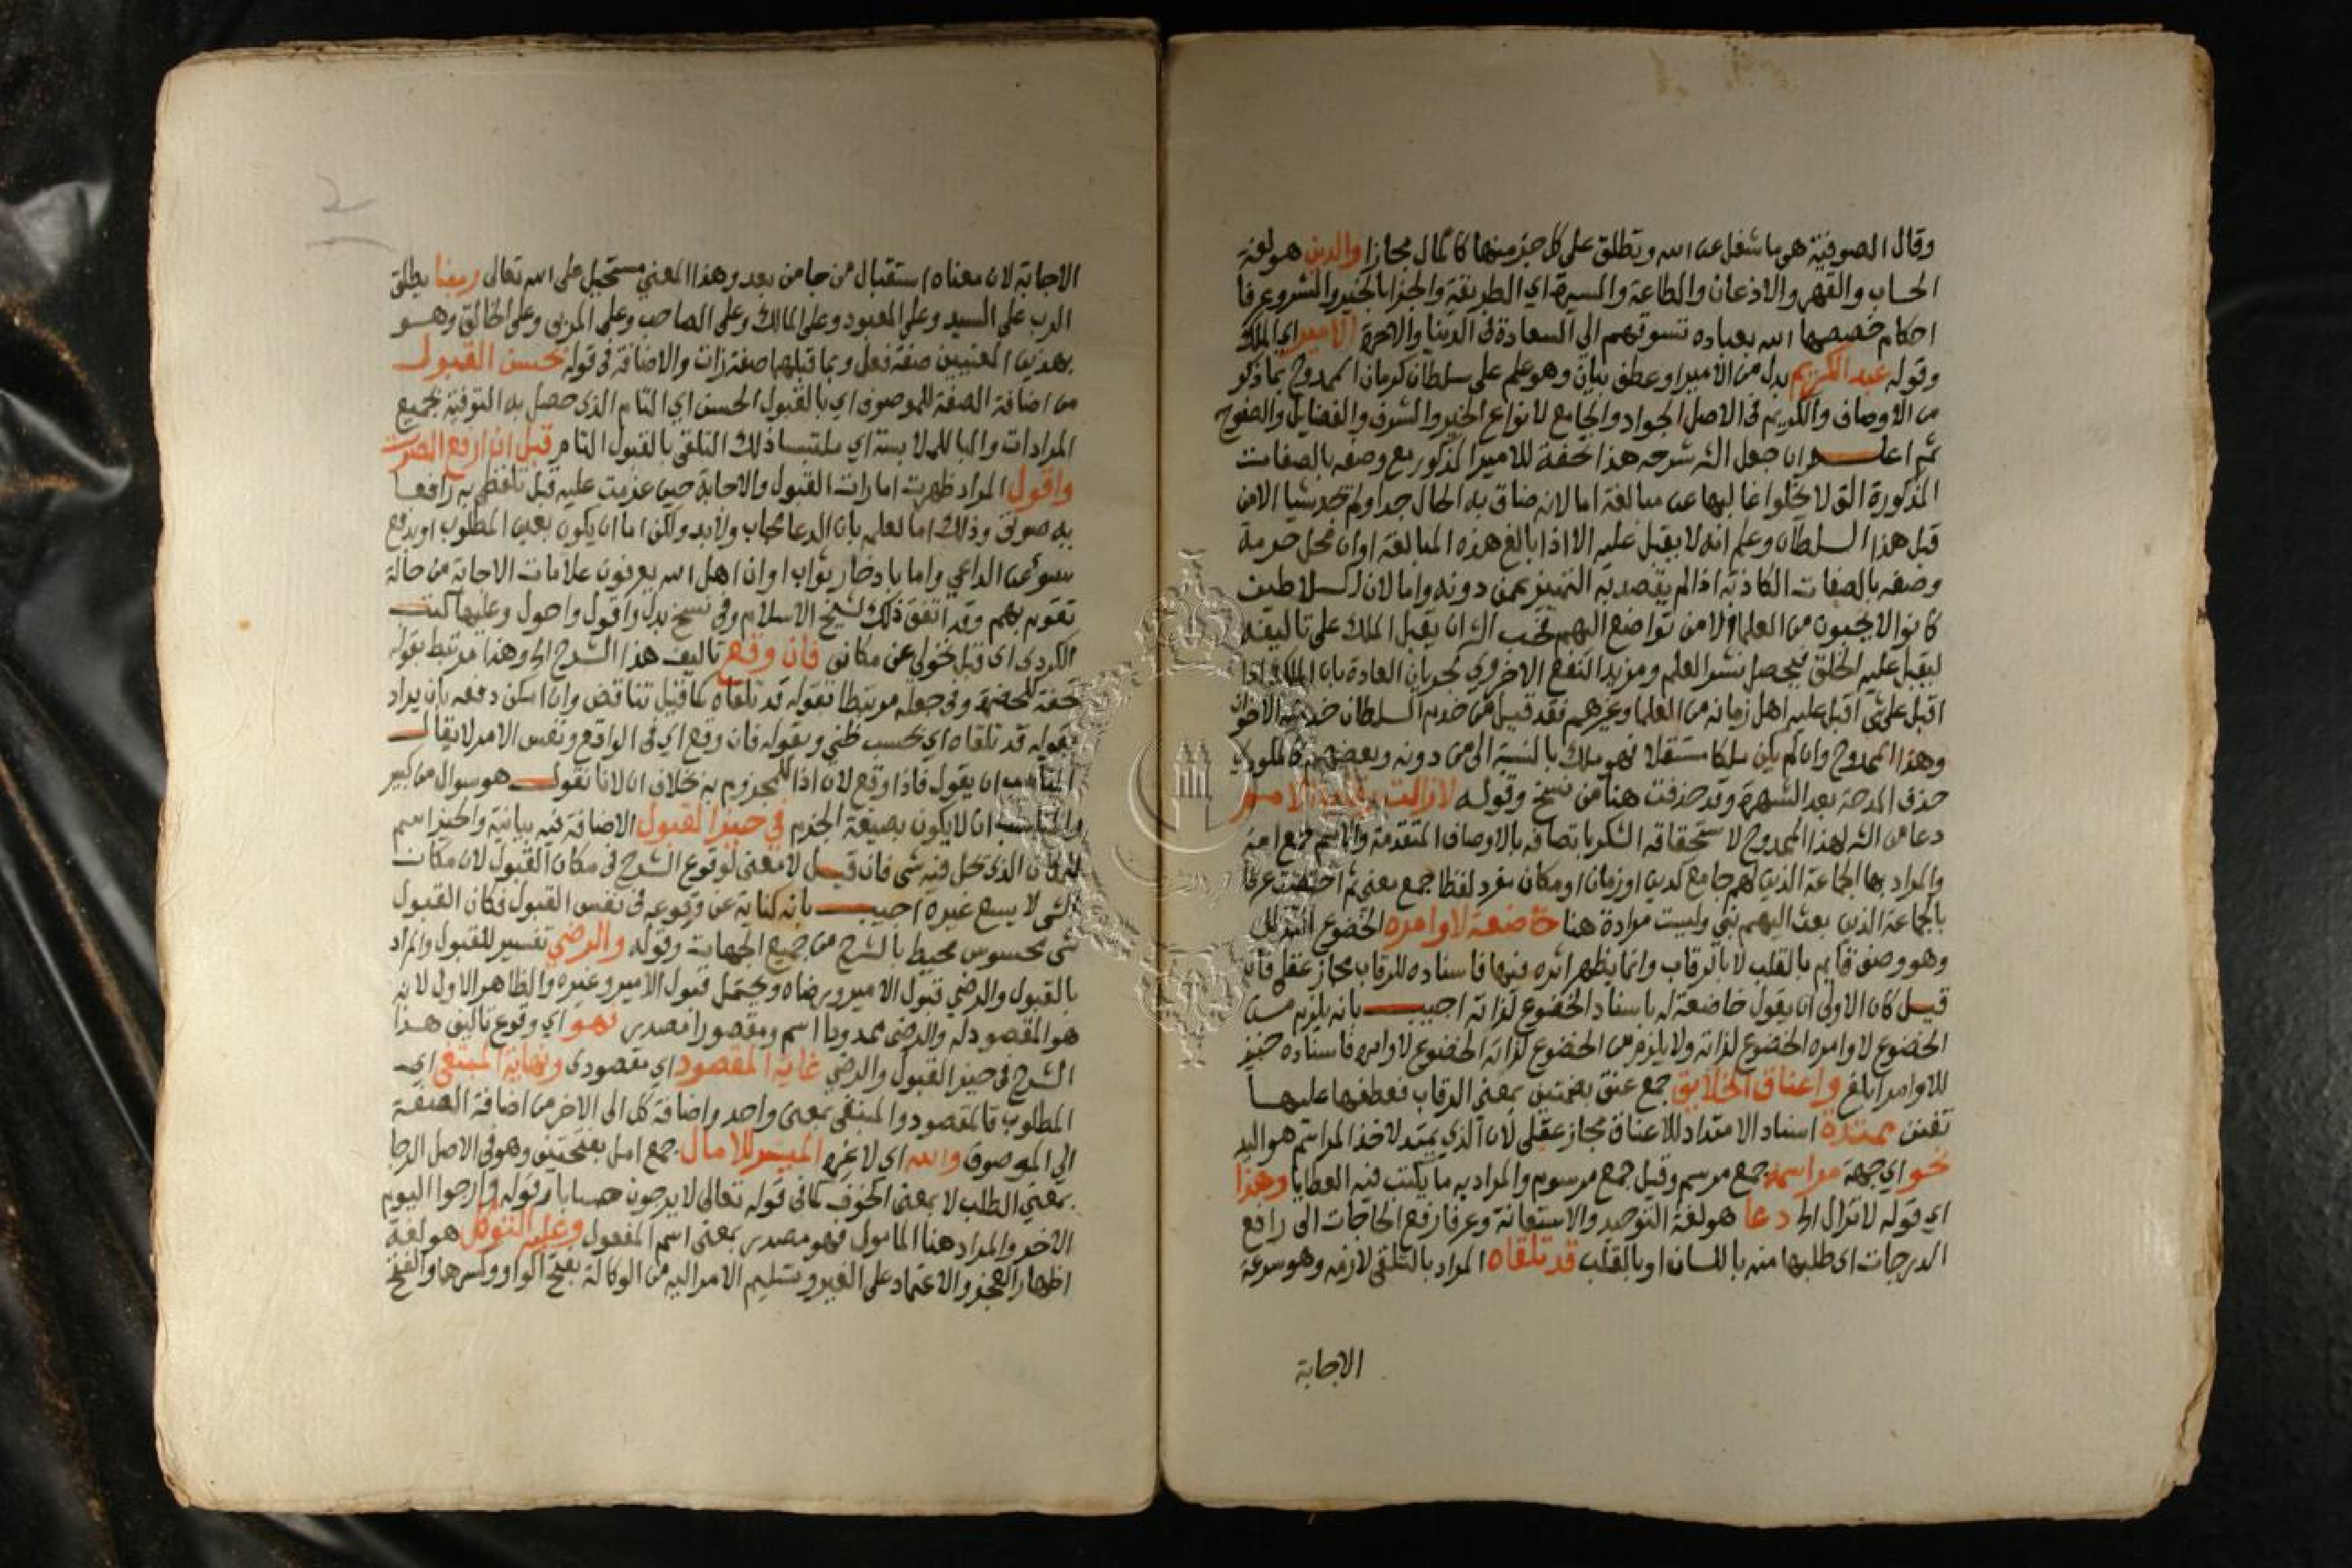 وقال الصوفية هي ما شغل عن الله وتطلق على كل جزء منها كالمال مجازا والدين هو لغة
الحساب والقهر والاذعان والطاعة والسيرة اي الطريقة والجزا بالخير والشر وعرفا
احكام خصصها الله بعباده تسوقهم الى السعادة في الدنيا والاخرة الامير اي الملك
وقوله عبد الكريم بدل من الامير او عطف بيان وهو علم على سلطان كرمان الممدوح بما ذكر
من الاوصاف والكريم في الاصل الجواد والجامع لانواع الخير والشرف والفضايل والصفوح
ثم اعلم ان جعل الش شرحه هذا تحفة للامير المذكور مع وصفه بالصفات
المذكورة التي لا تخلوا غالبها عن مبالغة اما لانه ضاق به الحال جدا ولم يجد شيا الا من
قبل هذا السلطان وعلم انه لا يقبل عليه الا اذا بالغ هذه المبالغة اوان محل حرمة
وصفه بالصفات الكاذبة اذا لم يقصد به التمييز عمن دونه واما لان السلاطين
كانوا لا يحبون من العلما الا من تواضع اليهم فحب الش ان يقبل الملك على تاليفه
ليقبل عليه الخلق فيحصل نشر العلم ومزيد النفع الاخروي لجريان العادة بان الملك اذا
اقبل على شي اقبل عليه اهل زمانه من العلما وغيرهم فقد قيل من خدم السلطان خدمته الاخوان
وهذا الممدوح وان لم يكن ملكا مستقلا فهو ملك بالنسبة الى من دونه وبعضهم كالملوي
حذف المدحة بعد الشهرة وقد حذفت هنا من نسخ وقوله لا زالت رقاب الامم
دعا من الش لهذا الممدوح لاستحقاقه الشكر باتصافه بالاوصاف المتقدمة والامم جمع امة
والمراد بها الجماعة الذين لهم جامع كدين او زمان او مكان مفرد لفظا جمع معنى ثم اختصت عرفا
بالجماعة الذين بعث اليهم نبي وليست مرادة هنا خاضعة لاوامره الخضوع التذلل
وهو وصف قايم بالقلب لا بالرقاب وانما يظهر اثره فيها فاسناده للرقاب مجاز عقلي فان
قيل كان الاولى ان يقول خاضعة له باسناد الخضوع لذاته اجيب بانه يلزم من
الخضوع لاوامره الخضوع لذاته ولا يلزم من الخضوع لذاته الخضوع لاوامره فاسناده حينيذ
للاوامر ابلغ واعناق الخلايق جمع عنق بضمتين بمعنى الرقاب فعطفها عليها
تفنن ممتدة اسناد الامتداد للاعناق مجاز عقلي لان الذي يمتد لاخذ المراسم هو اليد
نحو اي جهة مراسمه جمع مرسم وقيل جمع مرسوم والمراد به ما يكتب فيه العطايا وهذا
اي قوله لا تزال الخ دعا هو لغة التوحيد والاستعانة وعرفا رفع الحاجات الى رافع
الدرجات اي طلبها منه باللسان او بالقلب قد تلقاه المراد بالتلقي لازمه وهو سرعة
الاجابة
الاجابة لان معناه استقبال من جا من بعد وهذا المعني مستحيل على الله تعالى ربنا يطلق
الرب على السيد وعلى المعبود وعلى المالك وعلى الصاحب وعلى المربي وعلى الخالق وهو
بهذين المعنيين صفة فعل وبما قبلهما صفة ذات والاضافة في قوله بحسن القبول
من اضافة الصفة للموصوف اي بالقبول الحسن اي التام الذي حصل به التوفية لجميع
المرادات والبا للملابسة اي ملتبسا ذلك التلقي بالقبول التام قبل ان ارفع الصوت
واقول المراد ظهرت امارات القبول والاجابة حين عزمت عليه قبل تلفظي به رافعا
به صوتي وذلك اما لعلم بان الدعا يجاب ولا بد ولكن اما ان يكون بعين المطلوب او بدفع
سوء عن الداعي واما بادخار ثواب او ان اهل الله يعرفون علامات الاجابة من حالة
تقوم بهم وقد اتفق ذلك لشيخ الاسلام وفي نسخ بدل واقول واحول وعليها كتب
الكردي اي قبل تحولي عن مكاني فان وقع تاليف هذا الشرح الخ وهذا مرتبط بقوله
تحفة لحضرة وفي جعله مرتبطا بقوله قد تلقاه كما قيل تناقض وان امكن دفعه بان يراد
بقوله قد تلقاه اي بحسب ظني وبقوله فان وقع اي في الواقع ونفس الامر لا يقال
المناسب ان يقول فاذا وقع لان اذا للمجزوم به بخلاف ان لانا نقول هو سوال من كبير
والمناسب ان لا يكون بصيغة الجزم في حيز القبول الاضافة فيه بيانية والحيز اسم
للمكان الذي حل فيه شي فان قيل لا معنى لوقوع الشرح في مكان القبول لان مكان
الشي لا يسع غيره اجيب بانه كناية عن وقوعه في نفس القبول فكان القبول
شي محسوس محيط بالشرح من جميع الجهات وقوله والرضي تفسير للقبول والمراد
بالقبول والرضي قبول الامير ورضاه ويحتمل قبول الامير وغيره والظاهر الاول لانه
هو المقصود له والرضي ممدودا اسم ومقصورا مصدر فهو اي وقوع تاليف هذا
الشرح في حيز القبول والرضي غاية المقصود اي مقصودي ونهاية المبتغى اي
المطلوب فالمقصود والمبتغى بمعنى واحد واضافة كل الى الاخر من اضافة الصفة
الى الموصوف والله اي لا غيره الميسر للامال جمع امل بفتحتين وهو في الاصل الرجا
بمعنى الطلب لا بمعنى الخوف كما في قوله تعالى لا يرجون حسابا وقوله وارجوا اليوم
الاخر والمراد هنا المامول فهو مصدر بمعنى اسم المفعول وعليه التوكل هو لغة
اظهار العجز والاعتماد على الغير وتسليم الامر اليه من الوكالة بفتح الواو وكسرها والفتح